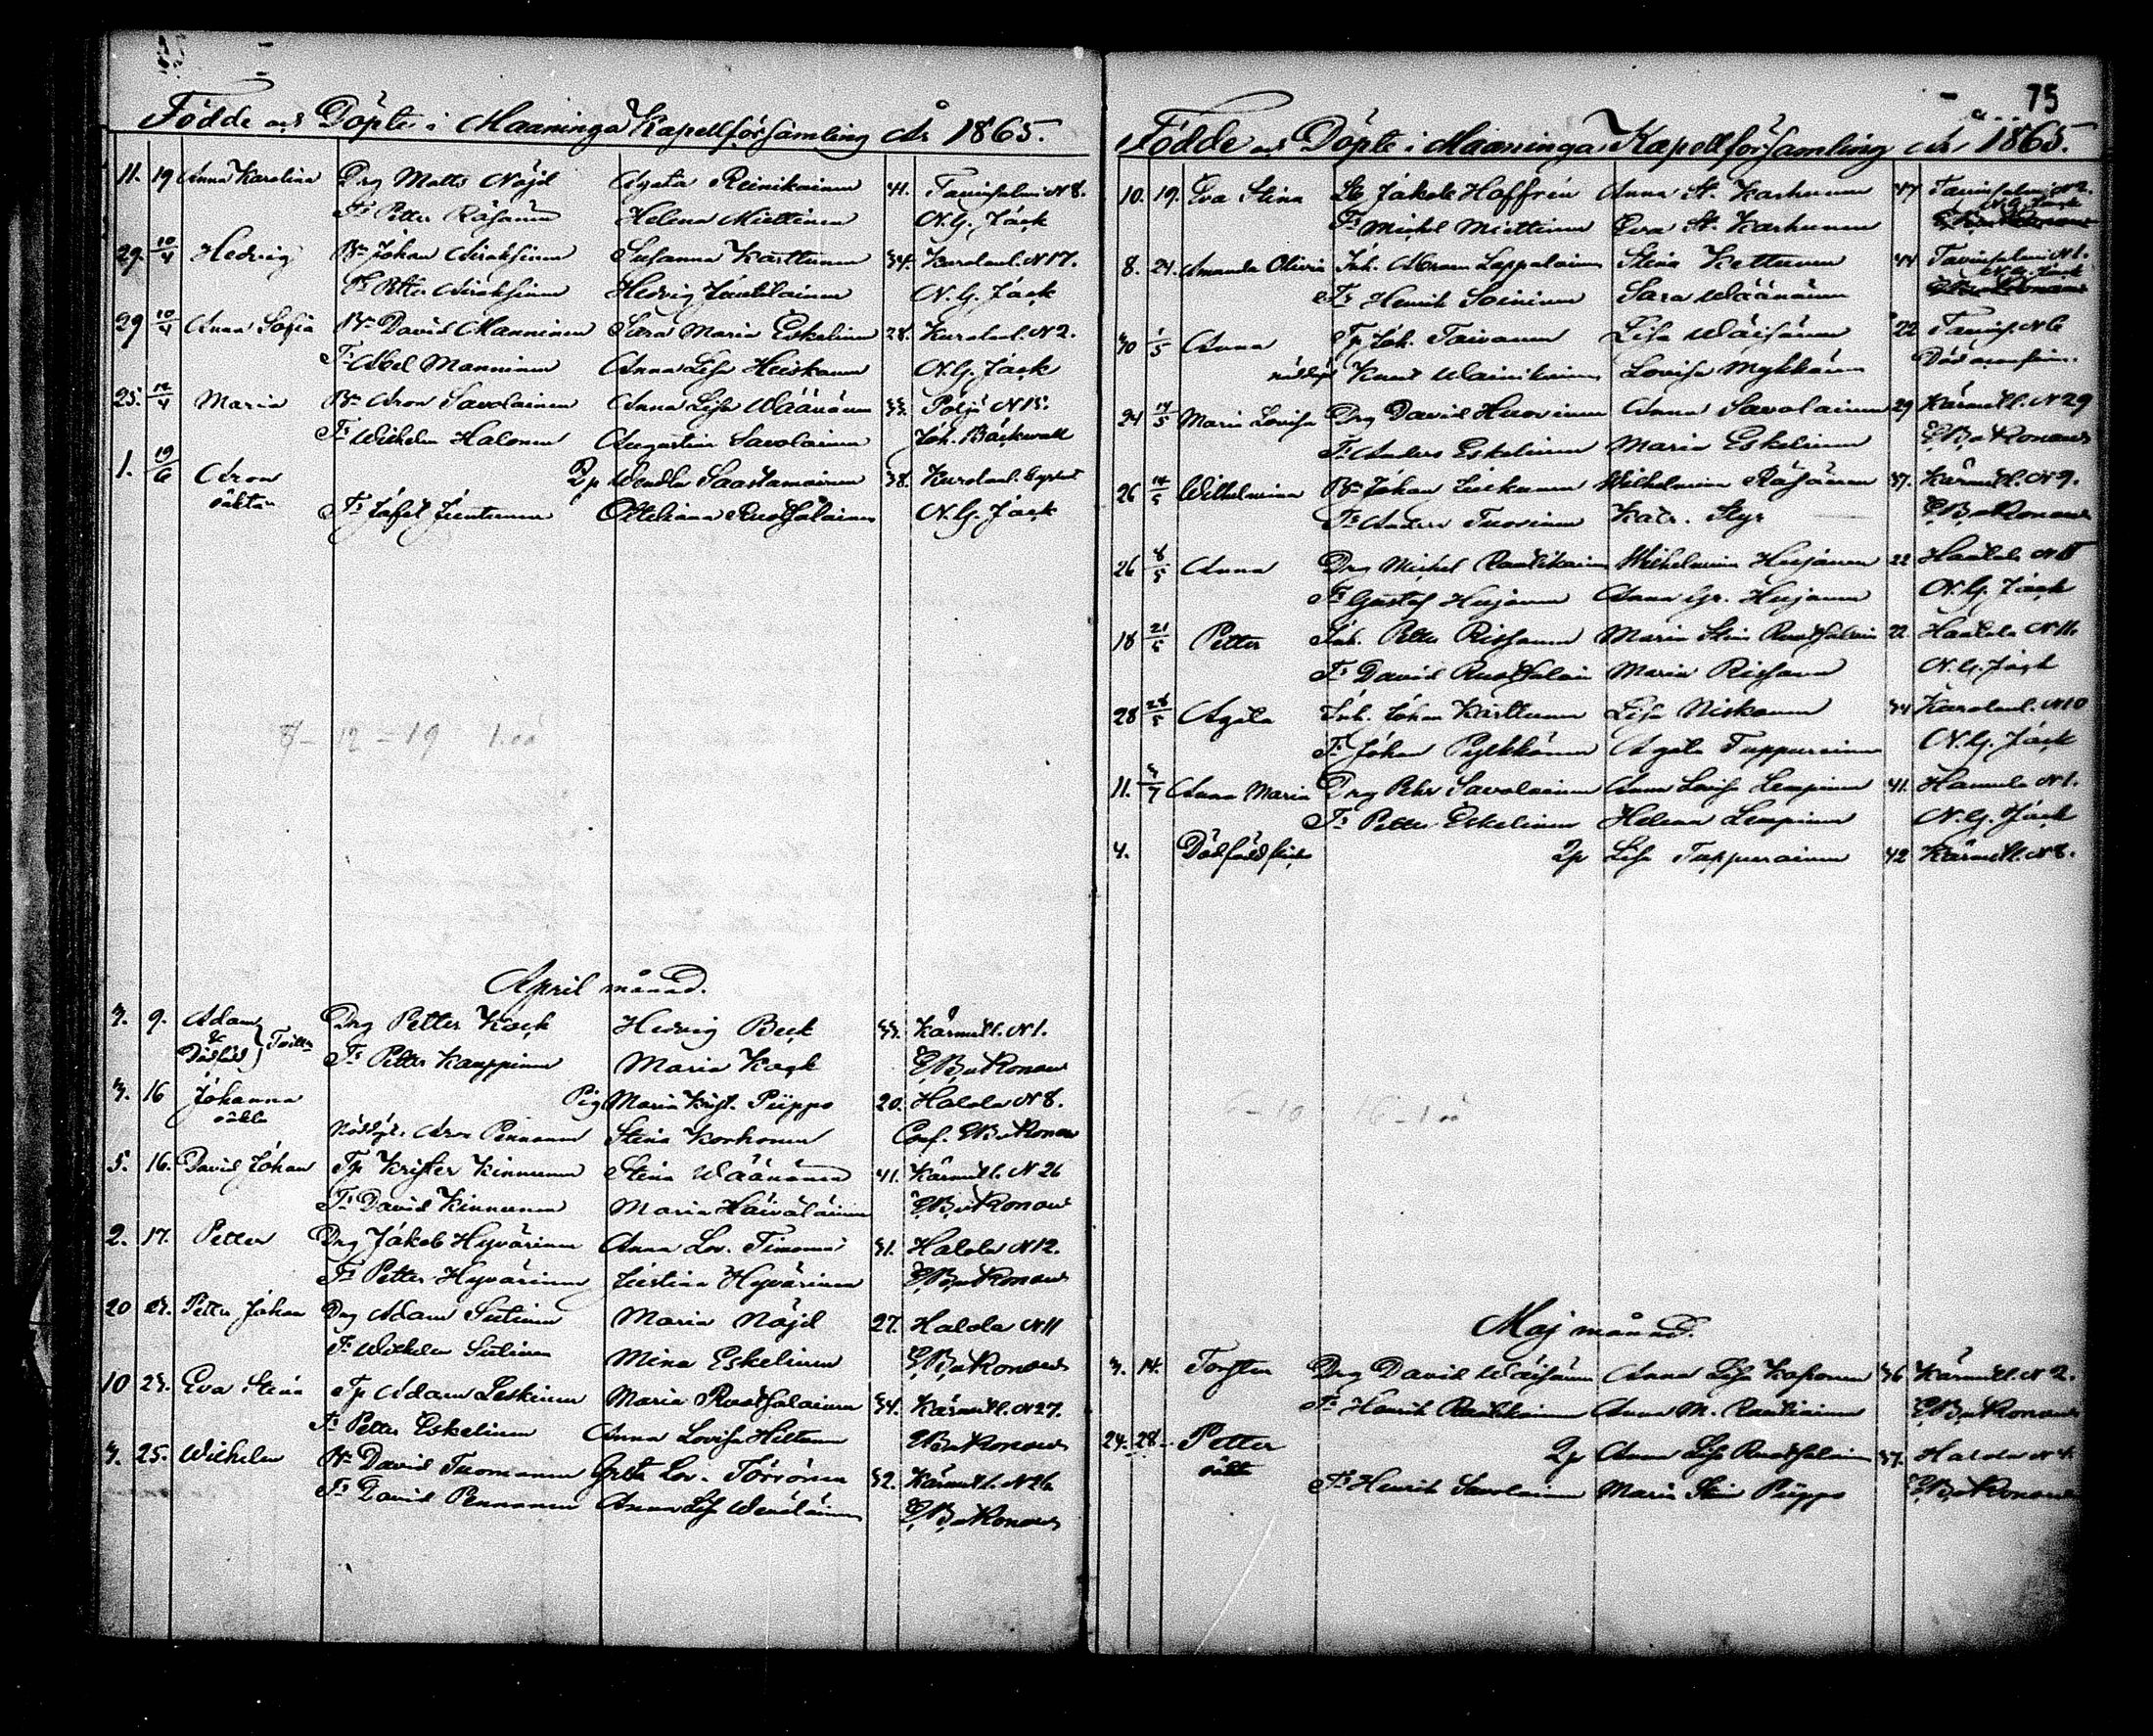 Födde och Döpte i Maaninga Kapellförsamling År 1865.
11. 19 Anna Karolina Drg Matts Nöjd Agata Reinikainen 41. Tavinsalmi N 8.
Fr Petter Räsänen Helena Miettinen N. G. Jack
29. 10/4 Hedvig Bn Johan Airaksinen Susanna Karttunen 34. Kurolanl. N 17.
Fr Petter Airaksinen Hedvig Jauhiainen N. G. Jack
29 10/4 Anna Sofia Bn David Manninen Sara Maria Eskelinen 28. Kurolanl. N 2.
Fr Abel Manninen Anna Lisa Heiskanen N. G. Jack
25. 12/4 Maria Bn Aron Savolainen Anna Lisa Wäänänen 33. Pöljä N 15.
Fr Wilhelm Halonen Augustina Savolainen Joh. Bäckvall
1. 19/6 Aron 2p Wendla Saastamoinen 38. Kurolanl.
oäkta Fr Jafet Juntunen Ottiliana Ruotsalainen N. G. Jack
April månad.
3. 9. Adam Drg Petter Kack Hedvig Beck 33. Kärmell. N 1.
& Dödföd } Tvilln Fr Petter Kauppinen Maria Kack E. B. v Konow
3. 16 Johanna Pig Maria Krist. Piippo 20. Halola N 8.
oäkta Nöddöpt. Aron Pennanen Stina Korhonen Conf. E. B. v Konow
5. 16. David Johan Tp Krister Kinnunen Stina Wäänänen 41. Kärmell. N 26
Fr David Kinnunen Maria Häiväläinen E. B. v Konow
2. 17. Petter Drg Jakob Hyvärinen Anna Lov. Timonen 31. Halola N 12.
Fr Petter Hyvärinen Justina Hyvärinen E. B. v Konow
20 23. Petter Johan Drg Adam Sutinen Maria Nöjd 27. Halola N 11
Fr Wilhelm Sutinen Mina Eskelinen E. B. v Konow
10 23. Eva Stina Tp Adam Leskinen Maria Ruotsalainen 34. Kärmell. N 27.
Fr Petter Eskelinen Anna Lovisa Hiltunen E. B. v Konow
3. 25. Wilhelm Bn David Tuomainen Greta Lov. Törrönen 32. Kärmell. N 26
Fr David Pennanen Anna Lisa Wenäläinen E. B. v Konow
75
Födde och Döpte i Maaninga Kapellförsamling År 1865.
10. 19. Eva Stina Jakob Hoffrén Anna St. Karhunen 37 Tavinsalmi N 2.
Fr Michel Miettinen Eva St. Karhunen N. G. Jack
8. 24. Amanda Olivia Inh. Abram Lappalainen Stina Kettunen 44 Tavinsalmi N 1.
Fr Henrik Soininen Sara Wäänänen N. G. Jack
30 1/5 Anna Tp Joh. Toivanen Lisa Wäisänen 22 Tavins. N 6
nöddöpt Knut Wainikainen Lovisa Mykkänen
24 14/5 Maria Lovisa Drg David Huovinen Anna Savolainen 29 Kärmell. N 29
Fr Anders Eskelinen Maria Eskelinen E. B. v Konow
26 14/5 Wilhelmina Bn Johan Liukkunen Wilhelmina Räsänen 37. Kärmell. N 9.
Fr Anders Tuovinen Katr. Styf E. B. v Konow
26 8/5 Anna Drg Michel Rautikainen Wilhelmina Hujanen 22 Haatala N
Fr Gustaf Hujanen Anna Gr. Hujanen N. G. Jack
18 21/5 Petter Inh. Petter Rissanen Maria Stina Ruotsalain 22 Haatala N 11.
Fr David Ruotsalain Maria Rissanen N. G. Jack
28 28/5 Agata Inh. Johan Karttunen Lisa Niskanen 34 Kurolanl. N 10
Fr Johan Pylkkänen Agata Tuppurainen N. G. Jack
11. 3/7 Anna Maria Drg Pehr Savolainen Anna Lovisa Lempinen 41. Hamula N 1.
Fr Petter Eskelinen Helena Lempinen N. G. Jack
4. Dödfödd 2p Lisa Tuppurainen 42 Kärmell. N 8.
Maj månad.
3. 14. Torsten Drg David Wäisänen Anna Lisa Kosonen 36 Kärmell. N 2.
Fr Henrik Rautikainen Anna M. Rautiainen E. B. v Konow
24. 28. Petter 2p Anna Lisa Ruotsalain 37. Halola N 4.
oäkta Fr Henrik Savolainen Maria Stina Piippo E. B. v Konow